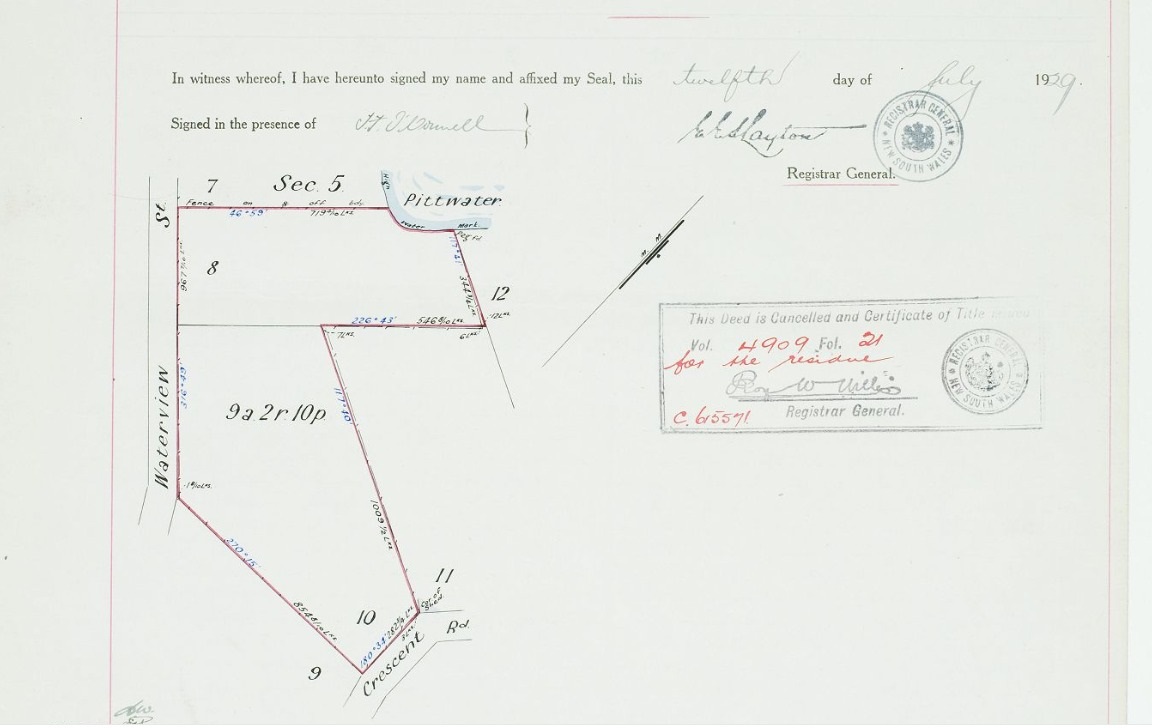 In witness whereof, I have hereunto signed my name and affixed my Seal, this twelfth day of July 1929.
Signed in the presence of
Registrar General.
REGISTRAR GENERAL
NEW SOUTH WALES
7 Sec. 5.
Pittwater
Fence on & off bdy.
46°59'
Water Mark
Peg Fd
Waterview St.
8
12
12Lks
226°43'
7Lks
6Lks
316°49'
9a. 2r. 10p.
117°40'
1009½Lks
270°15'
11
10
9
Crescent Rd.
This Deed is Cancelled and Certificate of Title issued
Vol. 4909 Fol. 21
for the residue
Registrar General.
C.615571
REGISTRAR GENERAL
NEW SOUTH WALES